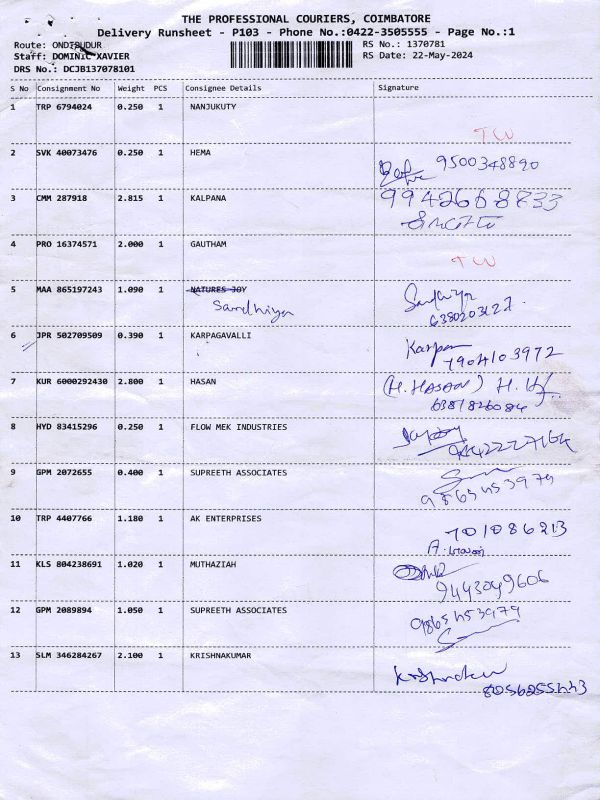 THE PROFESSIONAL COURIERS, COIMBATORE
Delivery Runsheet - P103 - Phone No.:0422-3505555 - Page No.:1
Route: ONDIPUDUR
RS No.: 1370781
Staff: DOMINIC XAVIER
RS Date: 22-May-2024
DRS No.: DCJB137078101
S No Consignment No Weight PCS Consignee Details Signature
1 TRP 6794024 0.250 1 NANJUKUTY
2 SVK 40073476 0.250 1 HEMA
9500348890
3 CMM 287918 2.815 1 KALPANA
9942668833
4 PRO 16374571 2.000 1 GAUTHAM
5 MAA 865197243 1.090 1 NATURES JOY
Sandhiya
Sandhiya
6380203127
6 JPR 502709509 0.390 1 KARPAGAVALLI
7904103972
7 KUR 6000292430 2.800 1 HASAN
(H. HASAN)
6381826084
8 HYD 83415296 0.250 1 FLOW MEK INDUSTRIES
9 GPM 2072655 0.400 1 SUPREETH ASSOCIATES
9865453979
10 TRP 4407766 1.180 1 AK ENTERPRISES
701086213
11 KLS 804238691 1.020 1 MUTHAZIAH
9443049606
12 GPM 2089894 1.050 1 SUPREETH ASSOCIATES
9865453979
13 SLM 346284267 2.100 1 KRISHNAKUMAR
8056255443